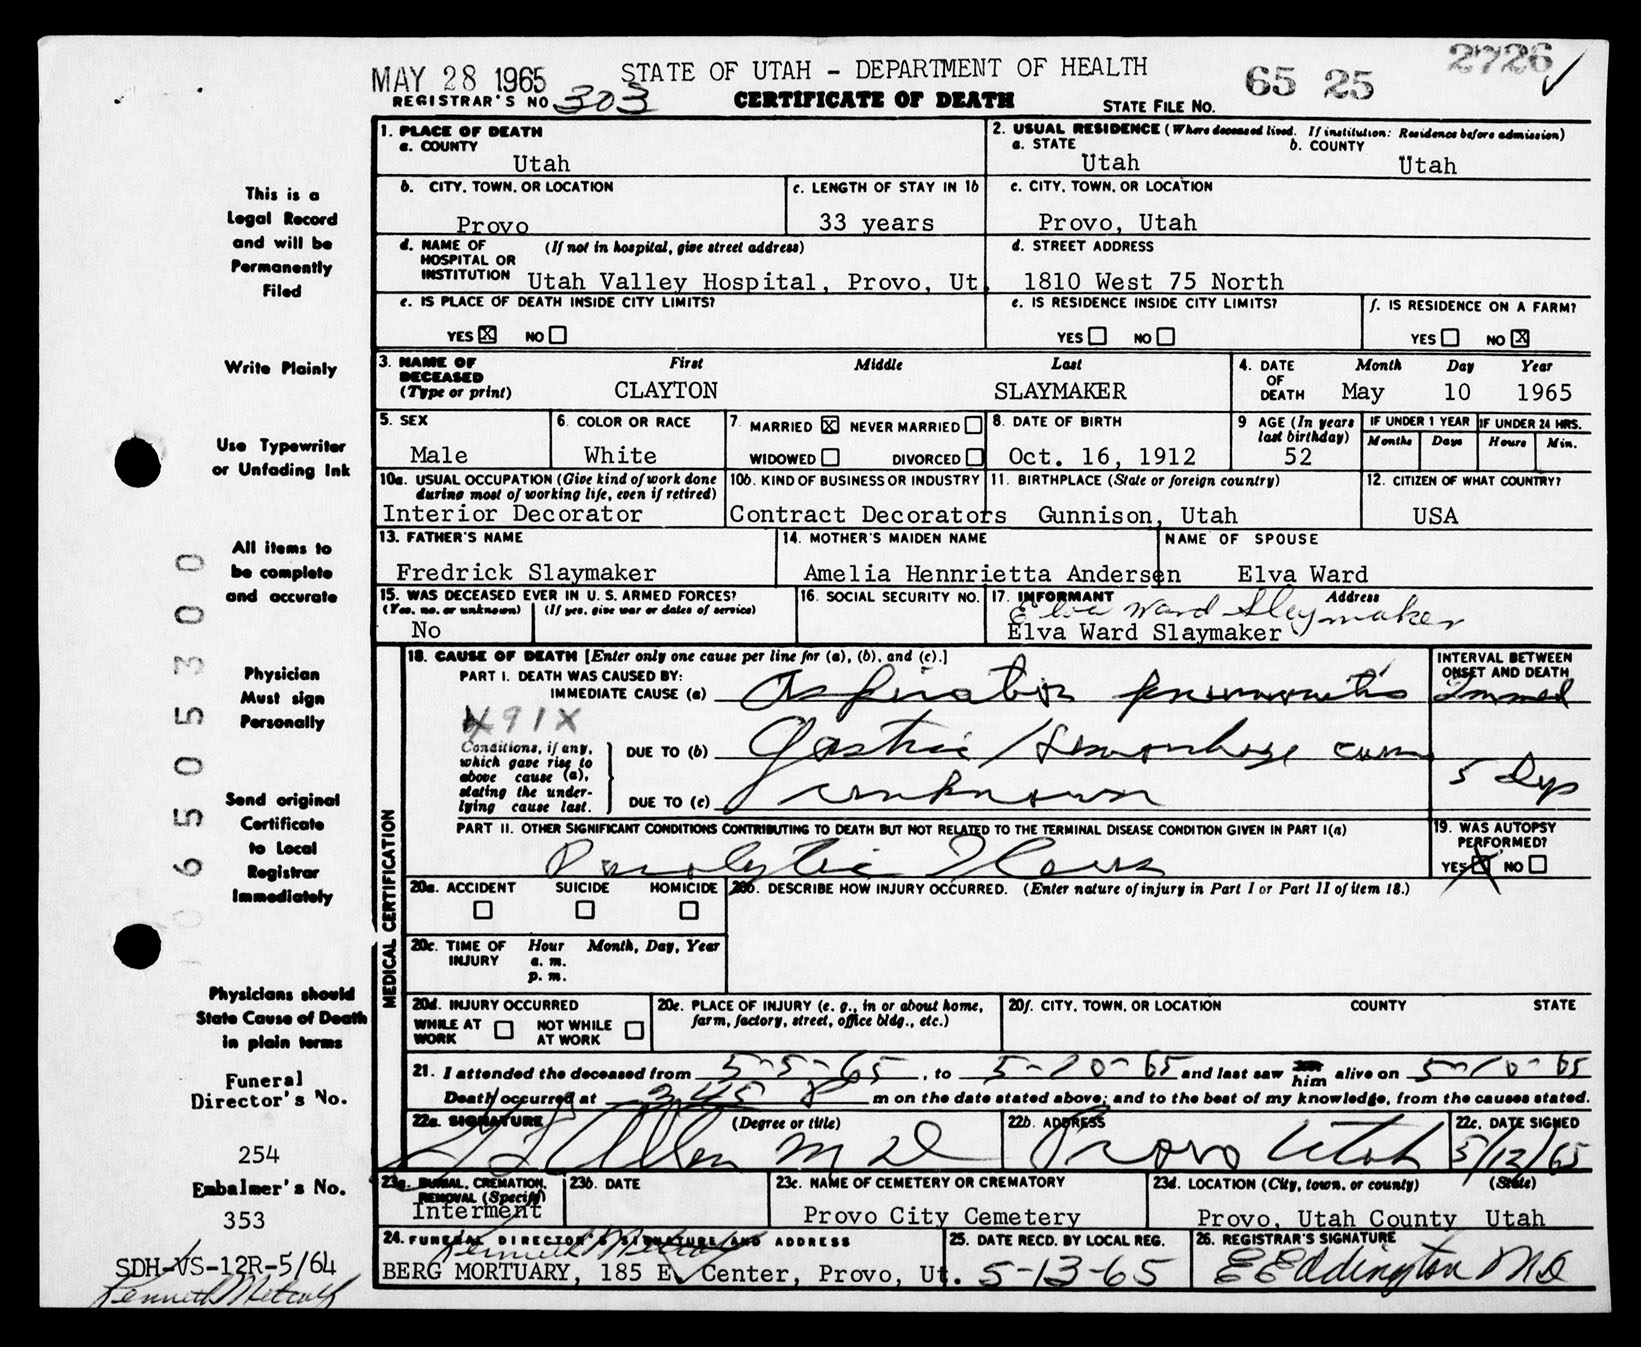 2726
MAY 28 1965 STATE OF UTAH - DEPARTMENT OF HEALTH 65 25
REGISTRAR'S NO 303 CERTIFICATE OF DEATH STATE FILE NO.
1. PLACE OF DEATH
a. COUNTY
Utah
2. USUAL RESIDENCE (Where deceased lived. If institution: Residence before admission)
a. STATE b. COUNTY
Utah Utah
b. CITY, TOWN, OR LOCATION
Provo
c. LENGTH OF STAY IN 1b
33 years
c. CITY, TOWN, OR LOCATION
Provo, Utah
d. NAME OF (If not in hospital, give street address)
HOSPITAL OR
INSTITUTION Utah Valley Hospital, Provo, Ut.
d. STREET ADDRESS
1810 West 75 North
e. IS PLACE OF DEATH INSIDE CITY LIMITS?
YES X NO
e. IS RESIDENCE INSIDE CITY LIMITS?
YES NO
f. IS RESIDENCE ON A FARM?
YES NO X
3. NAME OF First Middle Last
DECEASED
(Type or print) CLAYTON SLAYMAKER
4. DATE Month Day Year
OF
DEATH May 10 1965
5. SEX
Male
6. COLOR OR RACE
White
7. MARRIED X NEVER MARRIED
WIDOWED DIVORCED
8. DATE OF BIRTH
Oct. 16, 1912
9 AGE (In years
last birthday)
52
IF UNDER 1 YEAR IF UNDER 24 HRS.
Months Days Hours Min.
10a. USUAL OCCUPATION (Give kind of work done
during most of working life, even if retired)
Interior Decorator
10b. KIND OF BUSINESS OR INDUSTRY
Contract Decorators
11. BIRTHPLACE (State or foreign country)
Gunnison, Utah
12. CITIZEN OF WHAT COUNTRY?
USA
13. FATHER'S NAME
Fredrick Slaymaker
14. MOTHER'S MAIDEN NAME
Amelia Hennrietta Andersen
NAME OF SPOUSE
Elva Ward
15. WAS DECEASED EVER IN U. S. ARMED FORCES?
(Yes, no, or unknown) (If yes, give war or dates of service)
No
16. SOCIAL SECURITY NO.
17. INFORMANT Address
Elva Ward Slaymaker
Elva Ward Slaymaker
MEDICAL CERTIFICATION
18. CAUSE OF DEATH [Enter only one cause per line for (a), (b), and (c).]
PART I. DEATH WAS CAUSED BY:
IMMEDIATE CAUSE (a) Aspiration pneumonitis
491X
Conditions, if any,
which gave rise to
above cause (a),
stating the under-
lying cause last.
DUE TO (b) Gastric Hemorrhage cause
DUE TO (c) unknown
INTERVAL BETWEEN
ONSET AND DEATH
Immed
5 Dys
PART II. OTHER SIGNIFICANT CONDITIONS CONTRIBUTING TO DEATH BUT NOT RELATED TO THE TERMINAL DISEASE CONDITION GIVEN IN PART I(a)
Paralytic Ileus
19. WAS AUTOPSY
PERFORMED?
YES X NO
20a. ACCIDENT SUICIDE HOMICIDE
20b. DESCRIBE HOW INJURY OCCURRED. (Enter nature of injury in Part I or Part II of item 18.)
20c. TIME OF Hour Month, Day, Year
INJURY a. m.
p. m.
20d. INJURY OCCURRED
WHILE AT NOT WHILE
WORK AT WORK
20e. PLACE OF INJURY (e. g., in or about home,
farm, factory, street, office bldg., etc.)
20f. CITY, TOWN, OR LOCATION COUNTY STATE
21. I attended the deceased from 5-5-65, to 5-10-65 and last saw him alive on 5-10-65
Death occurred at 345 P m on the date stated above; and to the best of my knowledge, from the causes stated.
22a. SIGNATURE (Degree or title)
Allen MD
22b. ADDRESS
Provo Utah
22c. DATE SIGNED
5/12/65
23a. BURIAL, CREMATION,
REMOVAL (Specify)
Interment
23b. DATE
23c. NAME OF CEMETERY OR CREMATORY
Provo City Cemetery
23d. LOCATION (City, town, or county) (State)
Provo, Utah County Utah
24. FUNERAL DIRECTOR'S SIGNATURE AND ADDRESS
Kenneth Metcalf
BERG MORTUARY, 185 E. Center, Provo, Ut.
25. DATE RECD. BY LOCAL REG.
5-13-65
26. REGISTRAR'S SIGNATURE
E E Eddington MD
This is a
Legal Record
and will be
Permanently
Filed
Write Plainly
Use Typewriter
or Unfading Ink
All items to
be complete
and accurate
Physician
Must sign
Personally
Send original
Certificate
to Local
Registrar
Immediately
Physicians should
State Cause of Death
in plain terms
Funeral
Director's No.
254
Embalmer's No.
353
SDH-VS-12R-5/64
Kenneth Metcalf
06505300